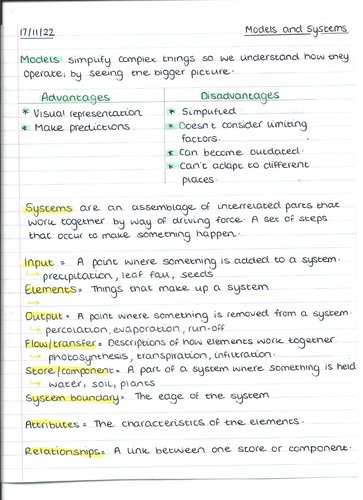 17/11/22 Models and Systems
Models simplify complex things so we understand how they
operate, by seeing the bigger picture.
Advantages
* Visual representation
* Make predictions
Disadvantages
* Simplified
* Doesn't consider limiting
factors.
* Can become outdated.
* Can't adapt to different
places.
Systems are an assemblage of interrelated parts that
work together by way of driving force. A set of steps
that occur to make something happen.
Input = A point where something is added to a system.
↳ precipitation, leaf fall, seeds
Elements = Things that make up a system
↳
Output = A point where something is removed from a system.
↳ percolation, evaporation, run-off
Flow/transfer = Descriptions of how elements work together.
↳ photosynthesis, transpiration, infiltration.
Store/component = A part of a system where something is held
↳ water, soil, plants
System boundary = The edge of the system
Attributes = The characteristics of the elements.
Relationships = A link between one store or component.